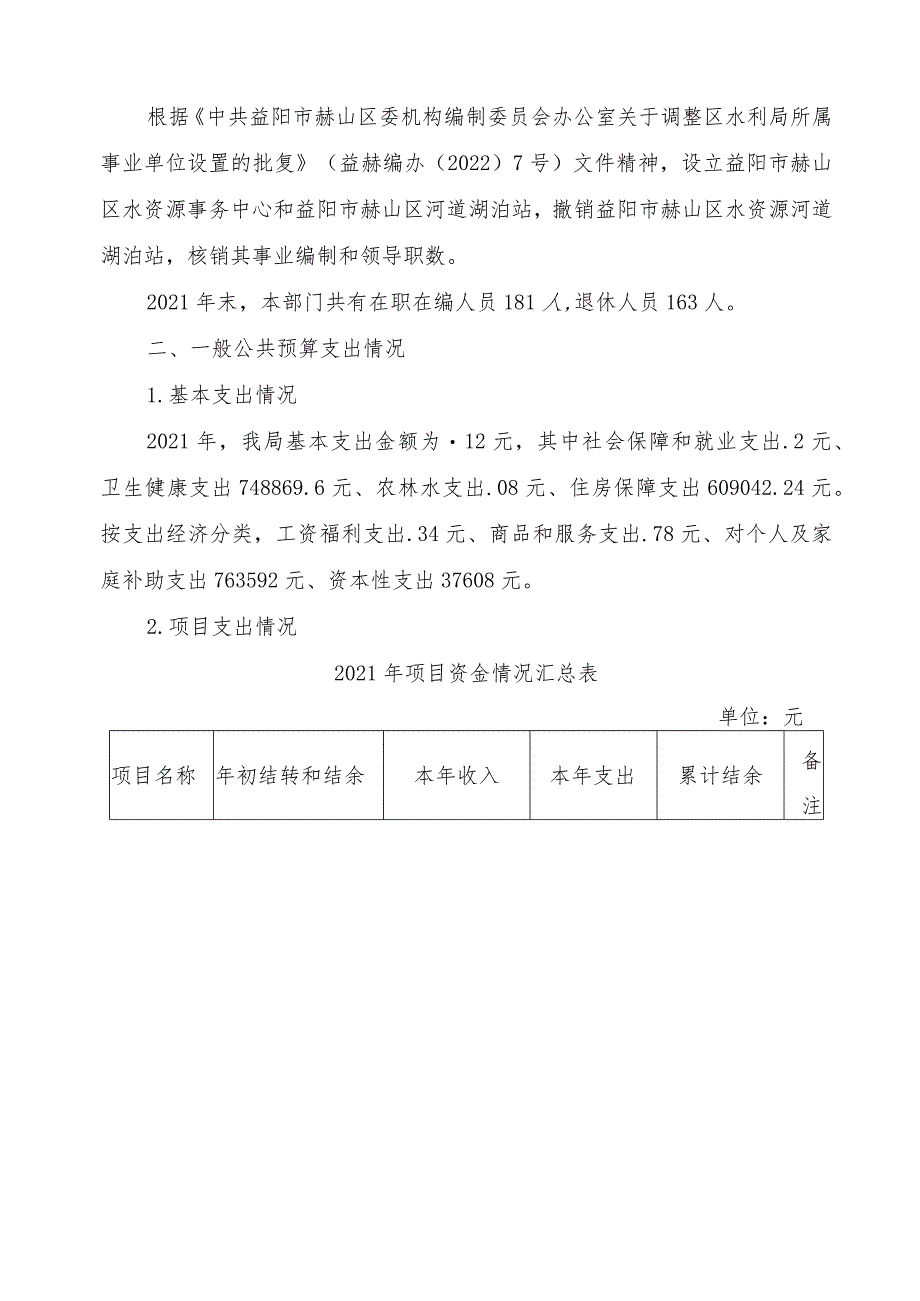 根据《中共益阳市赫山区委机构编制委员会办公室关于调整区水利局所属
事业单位设置的批复》（益赫编办（2022）7 号）文件精神，设立益阳市赫山
区水资源事务中心和益阳市赫山区河道湖泊站，撤销益阳市赫山区水资源河道
湖泊站，核销其事业编制和领导职数。
2021 年末，本部门共有在职在编人员 181 人,退休人员 163 人。
二、一般公共预算支出情况
1.基本支出情况
2021 年，我局基本支出金额为·12 元，其中社会保障和就业支出.2 元、
卫生健康支出 748869.6 元、农林水支出.08 元、住房保障支出 609042.24 元。
按支出经济分类，工资福利支出.34 元、商品和服务支出.78 元、对个人及家
庭补助支出 763592 元、资本性支出 37608 元。
2.项目支出情况
2021 年项目资金情况汇总表
单位：元
项目名称 年初结转和结余 本年收入 本年支出 累计结余 备
注